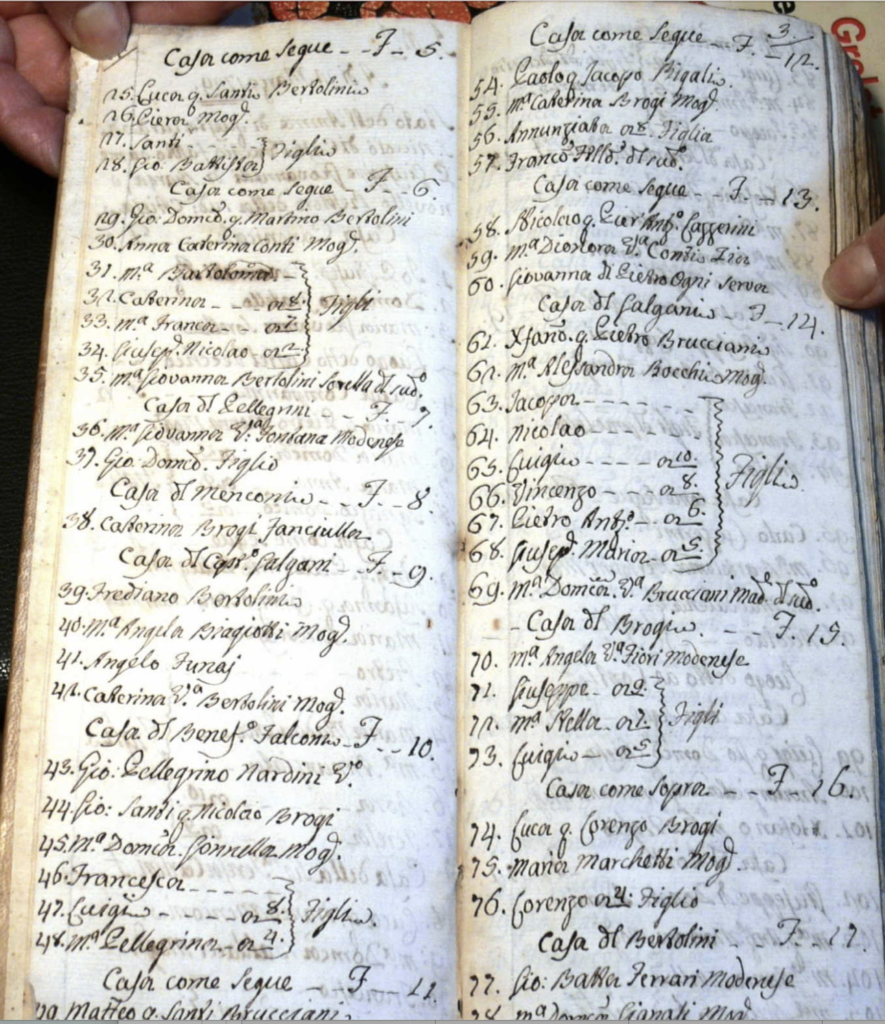 Casa come segue - - F - 5.
25. Luca q. Santi Bertolini
26. Piera Mog.
27. Santi
28. Gio: Battista Figli
Casa come segue - F - 6.
29. Gio: Domco. q. Martino Bertolini
30. Anna Caterina Conti Mog.
31. Ma. Bartolomea - -
32. Caterina - - - a 8.
33. Ma. Franca - - a Figli
34. Giusep. Nicolao a 2.
35. Ma. Giovanna Bertolini Sorella dl sudo.
Casa dl Pellegrini - F. 7.
36. Ma. Giovanna Va. Fontana Modenese
37. Gio Domco. Figlio
Casa dl Menconi - F - 8
38. Caterina Brogi Fanciulla
Casa dl Capo. Galgani - F - 9.
39. Frediano Bertolini
40. Ma. Angela Biagiotti Mog.
41. Angelo Funaj
42. Caterina Va. Bertolini Mog.
Casa dl Benefo. Falconi - F - - 10.
43. Gio: Pellegrino Nardini Vo.
44. Gio: Santi q. Nicolao Brogi
45. Ma. Domca. Gonnella Mog.
46. Francesca - - -
47. Luigi - - - a 8. Figli
48. Ma. Pellegrina - a 4.
Casa come segue - F - 11.
Matteo q. Santi Brucciani
3
Casa come segue - F. - 12.
54. Paolo q. Jacopo Bigali
55. Ma. Caterina Brogi Mog.
56. Annunziata a 8. Figlia
57. Franco. dl sudo.
Casa come segue - F - 13.
58. Nicolao q. Pier Anto.
59. Ma. Dionora Va. Conti Zia
60. Giovanna di Pietro Ogni serva
Casa dl Galgani F - 14.
61. Xfano. q. Pietro Brucciani
62. Ma. Alessandra Bocchi Mog.
63. Jacopa - - - - -
64. Nicolao
65. Luigi - - - - a 10.
66. Vincenzo - - a 8. Figli
67. Pietro Anto. - a 6.
68. Giusep. Maria - a 5.
69. Ma. Domca. Va. Brucciani Mad. dl sudo.
- Casa dl Brogi - - F. 15.
70. Ma. Angela Va. Fiori Modenese
71. Giuseppe - a 9.
72. Ma. Stella - a 7. Figli
73. Luigi - a 5
Casa come sopra - - F - 16.
74. Luca q. Lorenzo Brogi
75. Maria Marchetti Mog.
76. Lorenzo a 4: Figlio
Casa dl Bertolini - F. - 17.
77. Gio: Batta Ferrari Modenese
78. Ma. Domca. Mog.